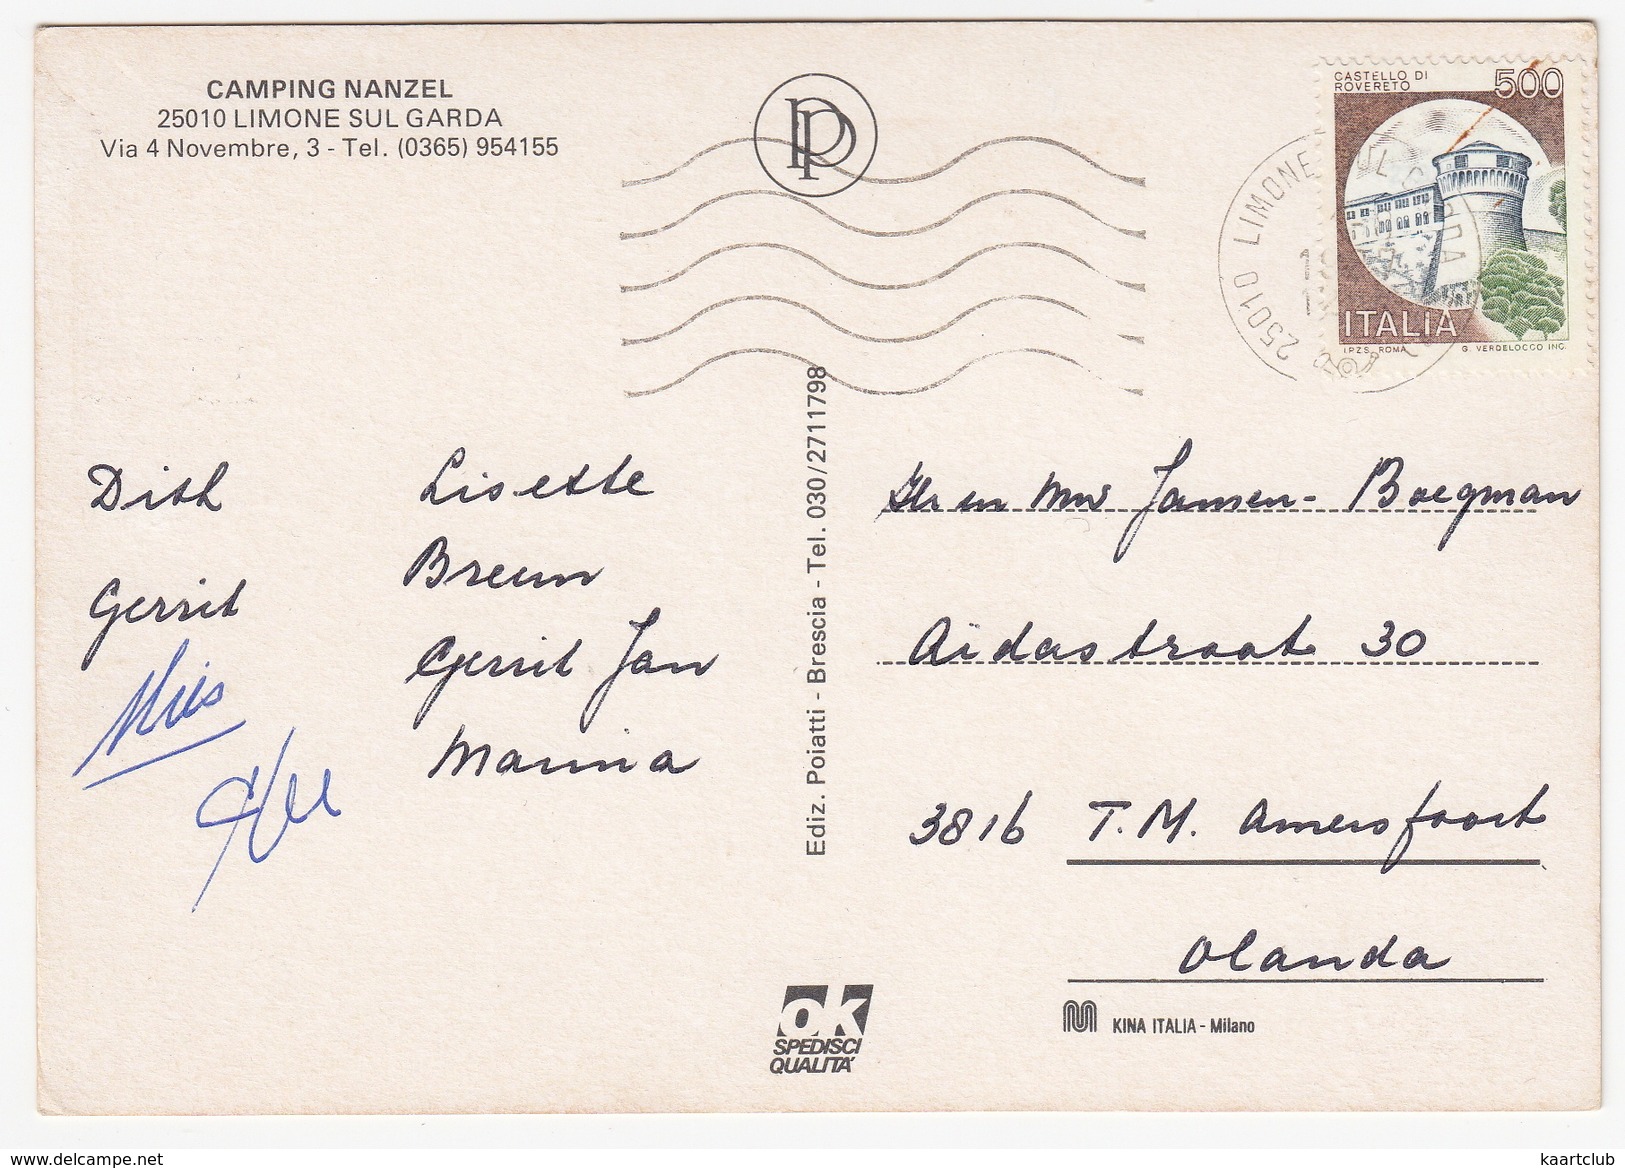 CAMPING NANZEL
25010 LIMONE SUL GARDA
Via 4 Novembre, 3 - Tel. (0365) 954155
PP
CASTELLO DI
ROVERETO
500
ITALIA
I.P.Z.S. ROMA
G. VERDELOCCO INC.
25010 LIMONE SUL GARDA
Dith
Gerrit
Mies
Lisette
Breun
Gerrit Jan
Marina
Ediz. Poiatti - Brescia - Tel. 030/2711798
Hr en Mw Jansen - Boegman
Aïdastraat 30
3816 T.M. Amersfoort
Olanda
OK
SPEDISCI
QUALITA'
KINA ITALIA - Milano
www.delcampe.net
kaartclub